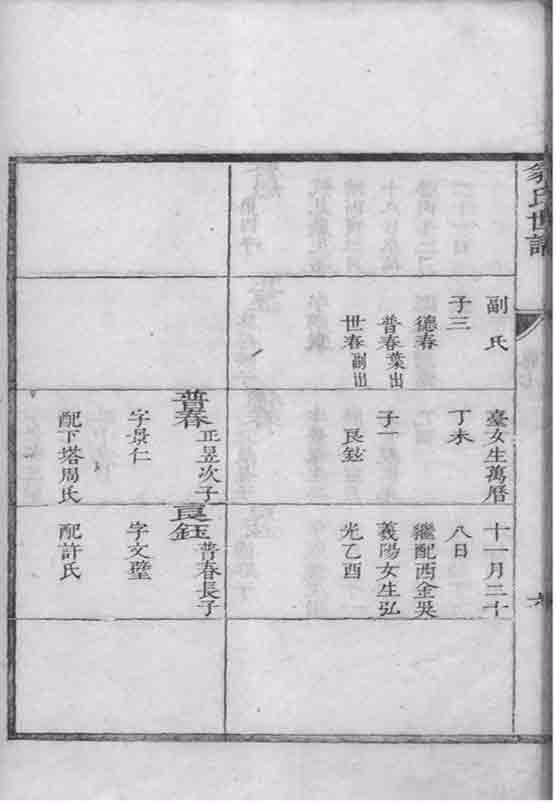 氏世譜
副氏
子三
德春
普春葉出
世春副出
臺女生萬曆
丁未
子一
良鉉
普春 正昱次子
字景仁
配下塔周氏
十一月二十
八日
繼配西金吳
義陽女生弘
光乙酉
良鈺 普春長子
字文璧
配許氏